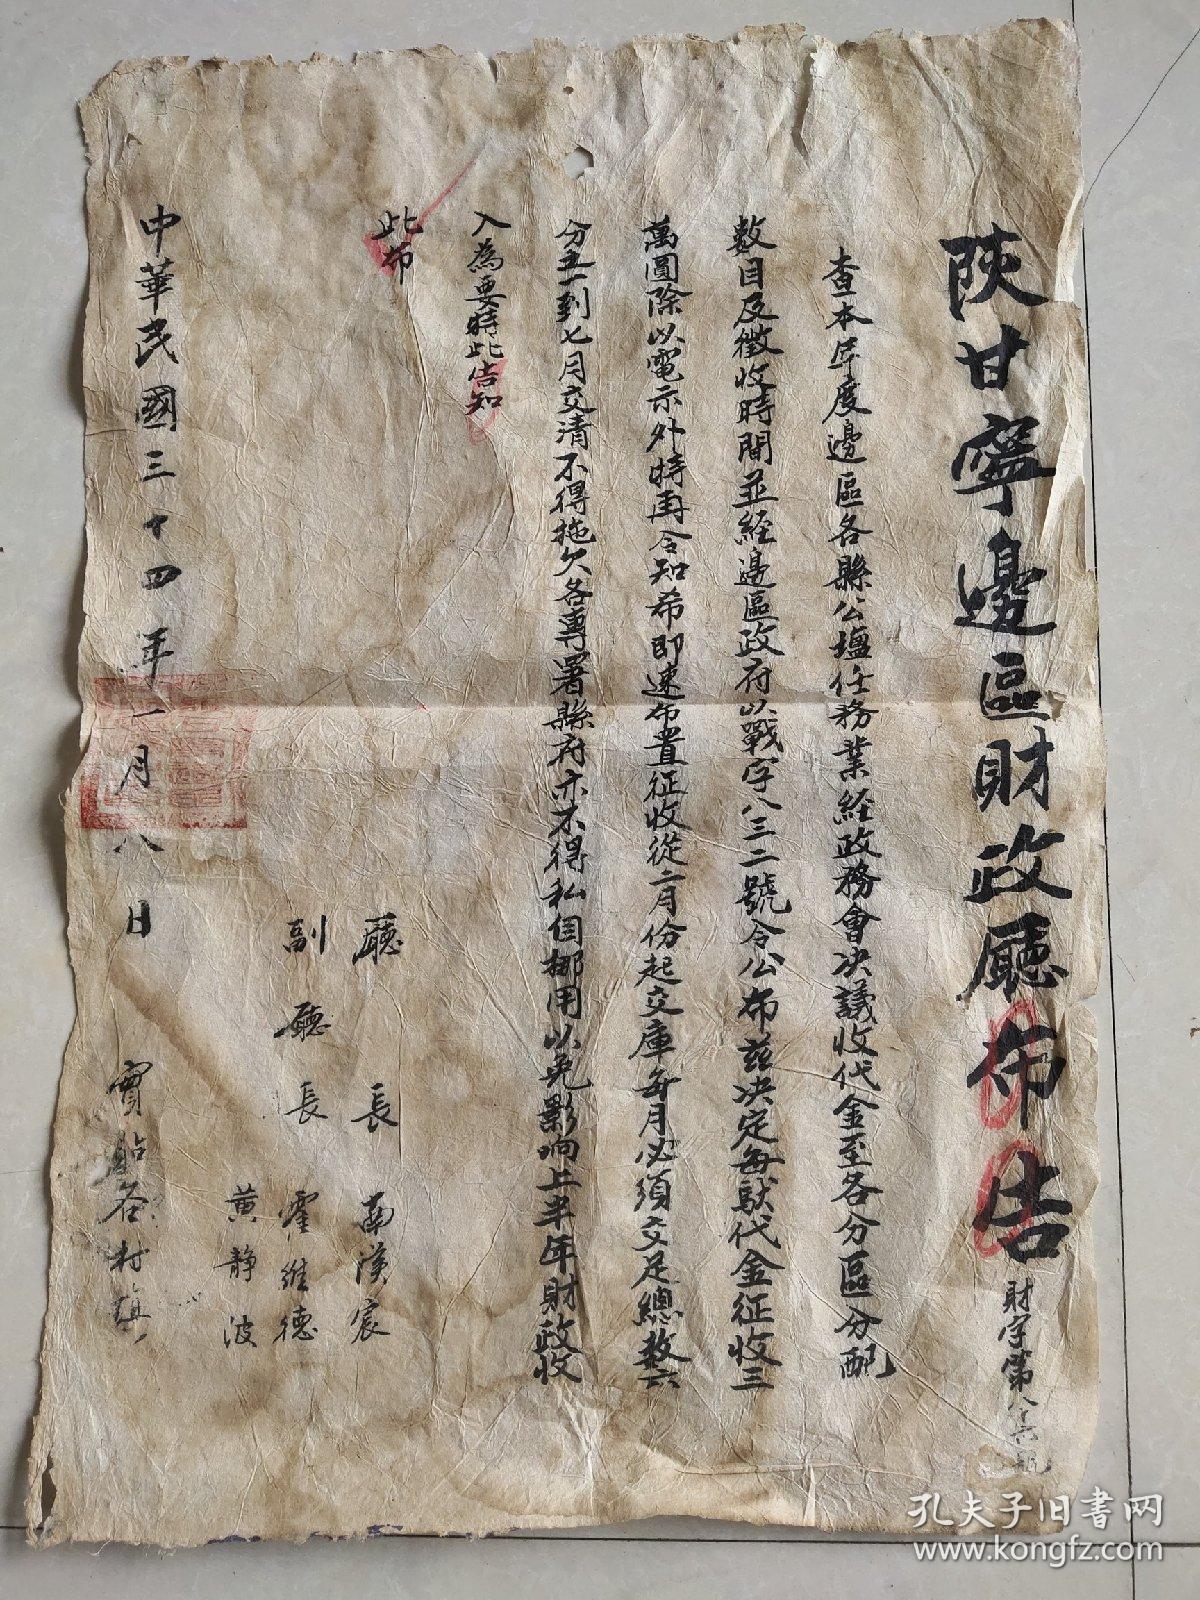 陝甘寧邊區財政廳布告
財字第八十六號
查本年度邊區各縣公壇任務業經政務會决議收代金至各分區分配
數目及徵收時間並經邊區政府以戰字八三二號令公布茲决定每馱代金征收三
萬圓除以電示外特再令知希即速布置征收從二月份起交庫每月必須交足總數六
分之一到七月交清不得拖欠各專署縣府亦不得私自挪用以免影响上半年財政收
入為要特此告知
此布
廳長 南漢宸
副廳長 霍維德
黄静波
中華民國三十四年一月八日
實貼各村鎮
孔夫子旧书网
www.kongfz.com